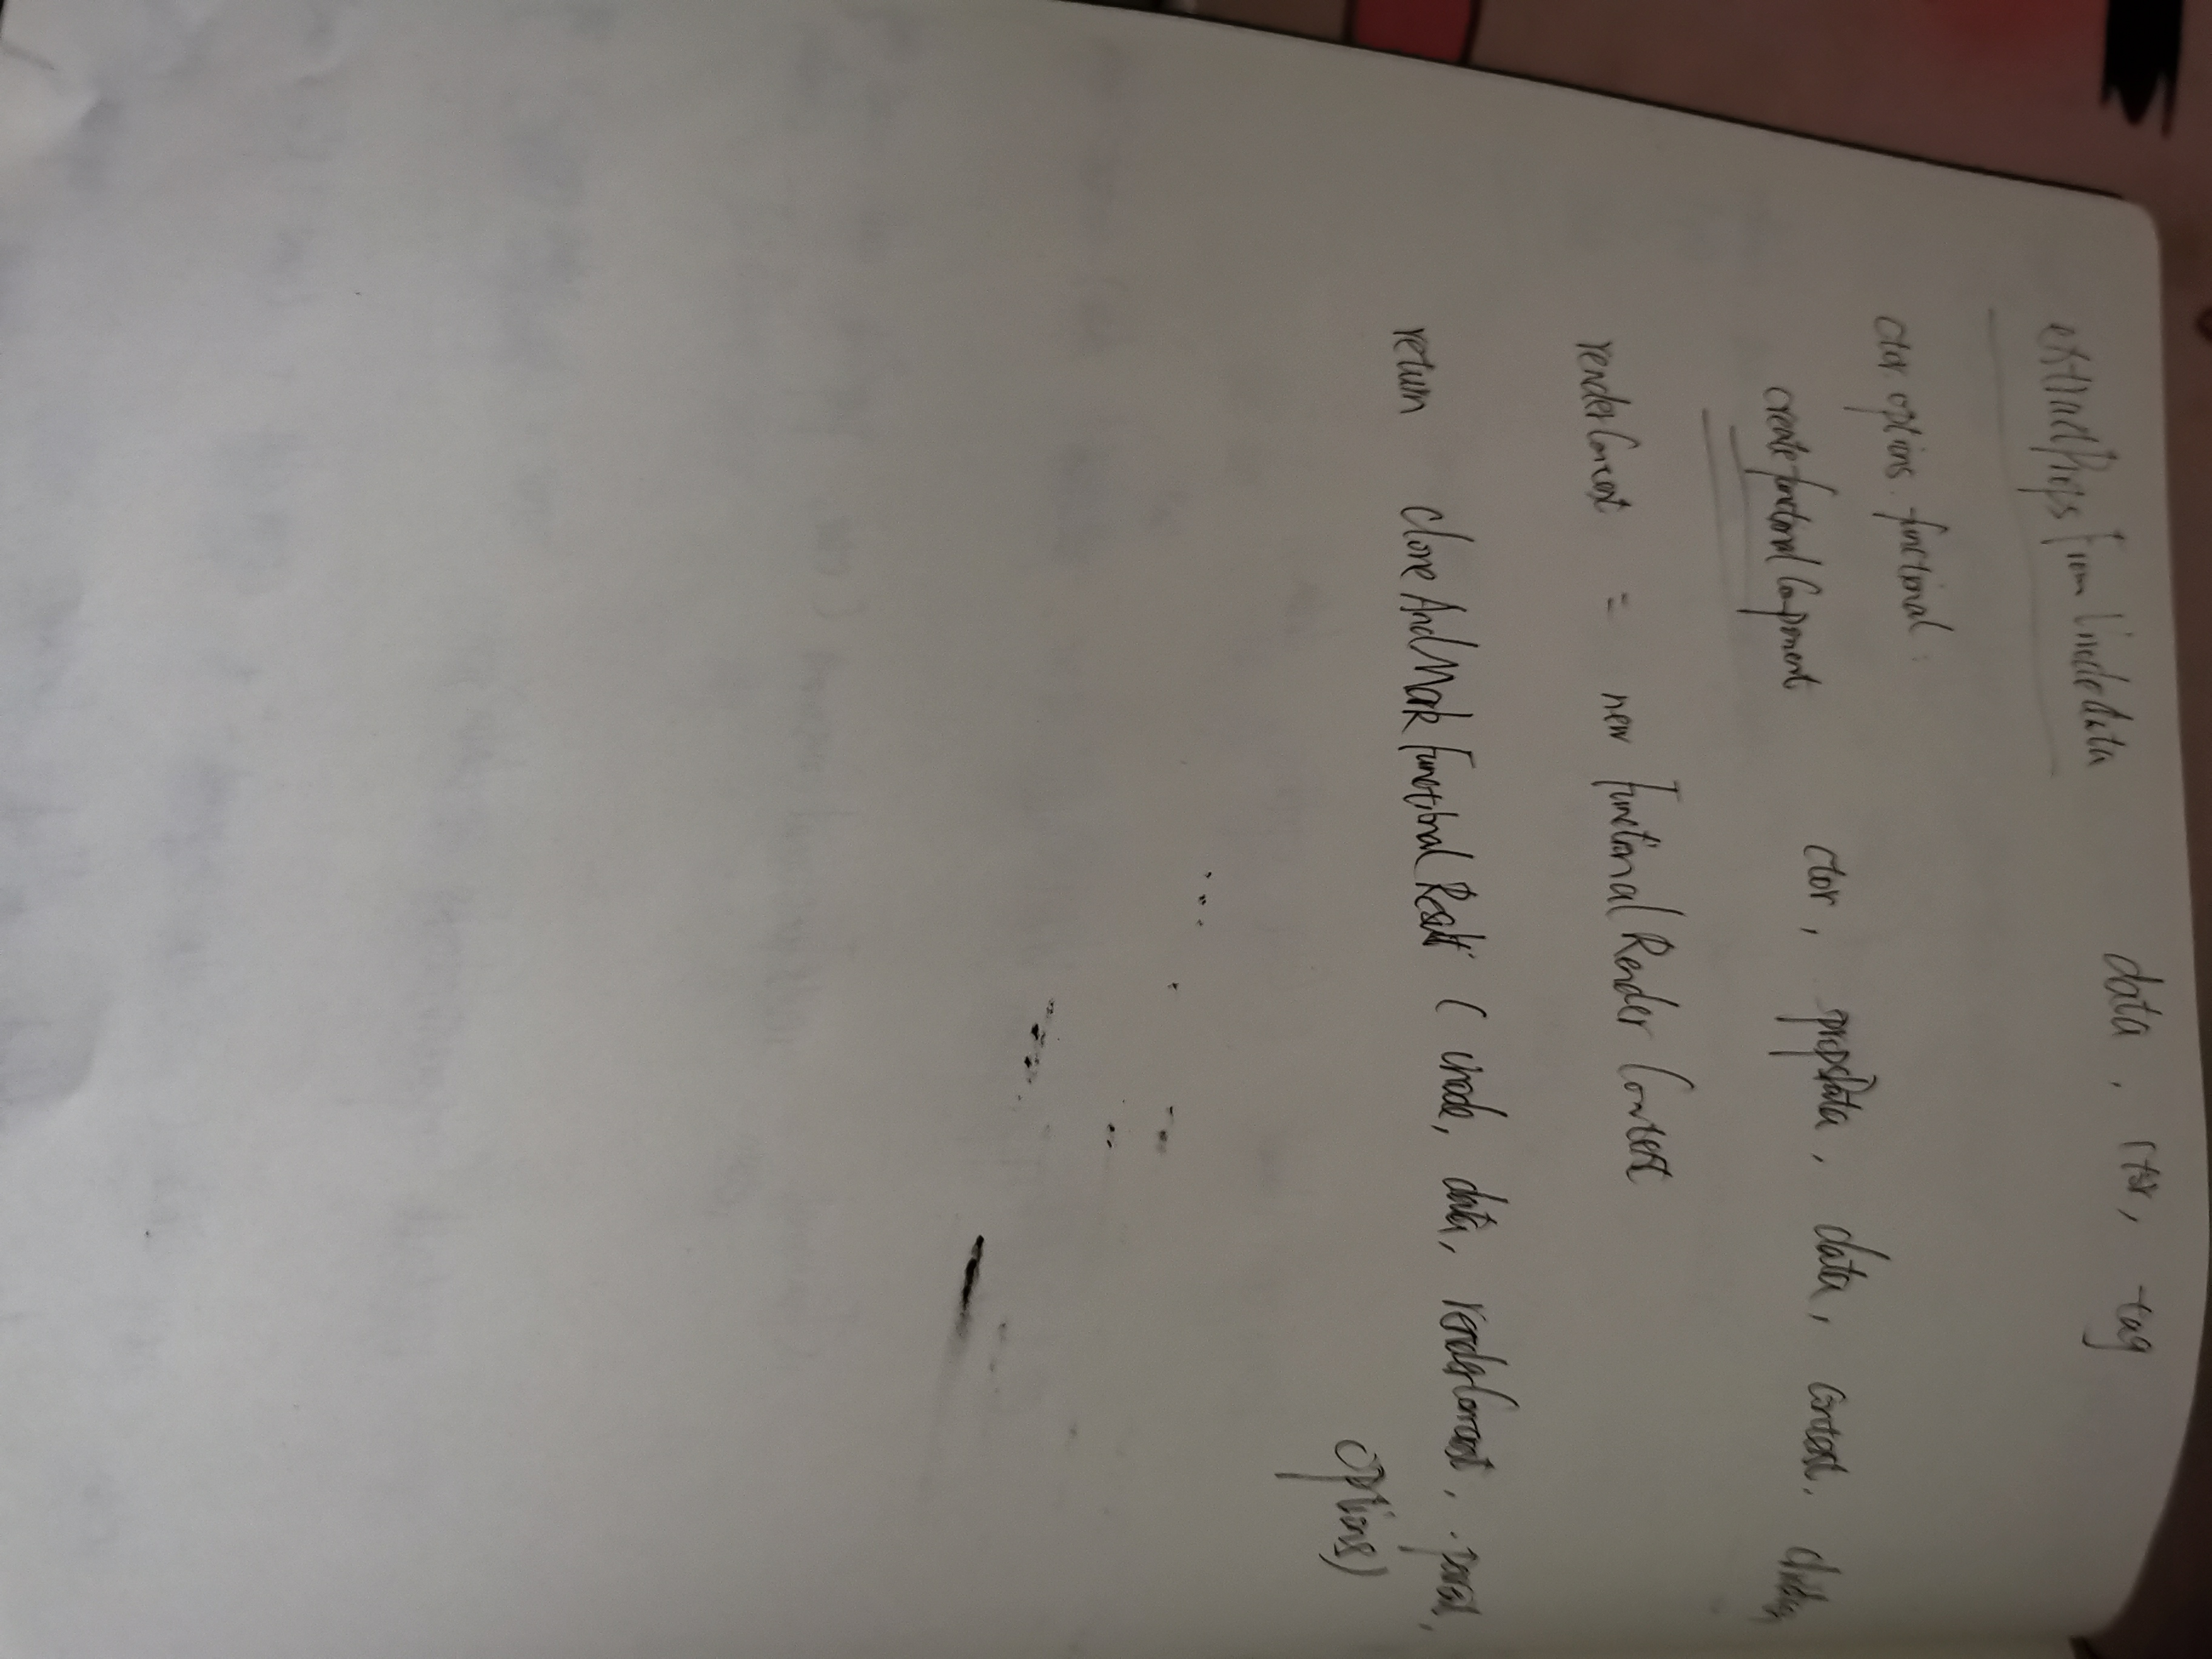 extractPropsFromVnodeData data, ctor, tag
ctor options. functional:
createFunctionalComponent ctor, propsData, data, context, children
renderContext = new FunctionalRenderContext
return cloneAndMarkFunctionalResult ( vnode, data, renderContext, parent,
options)